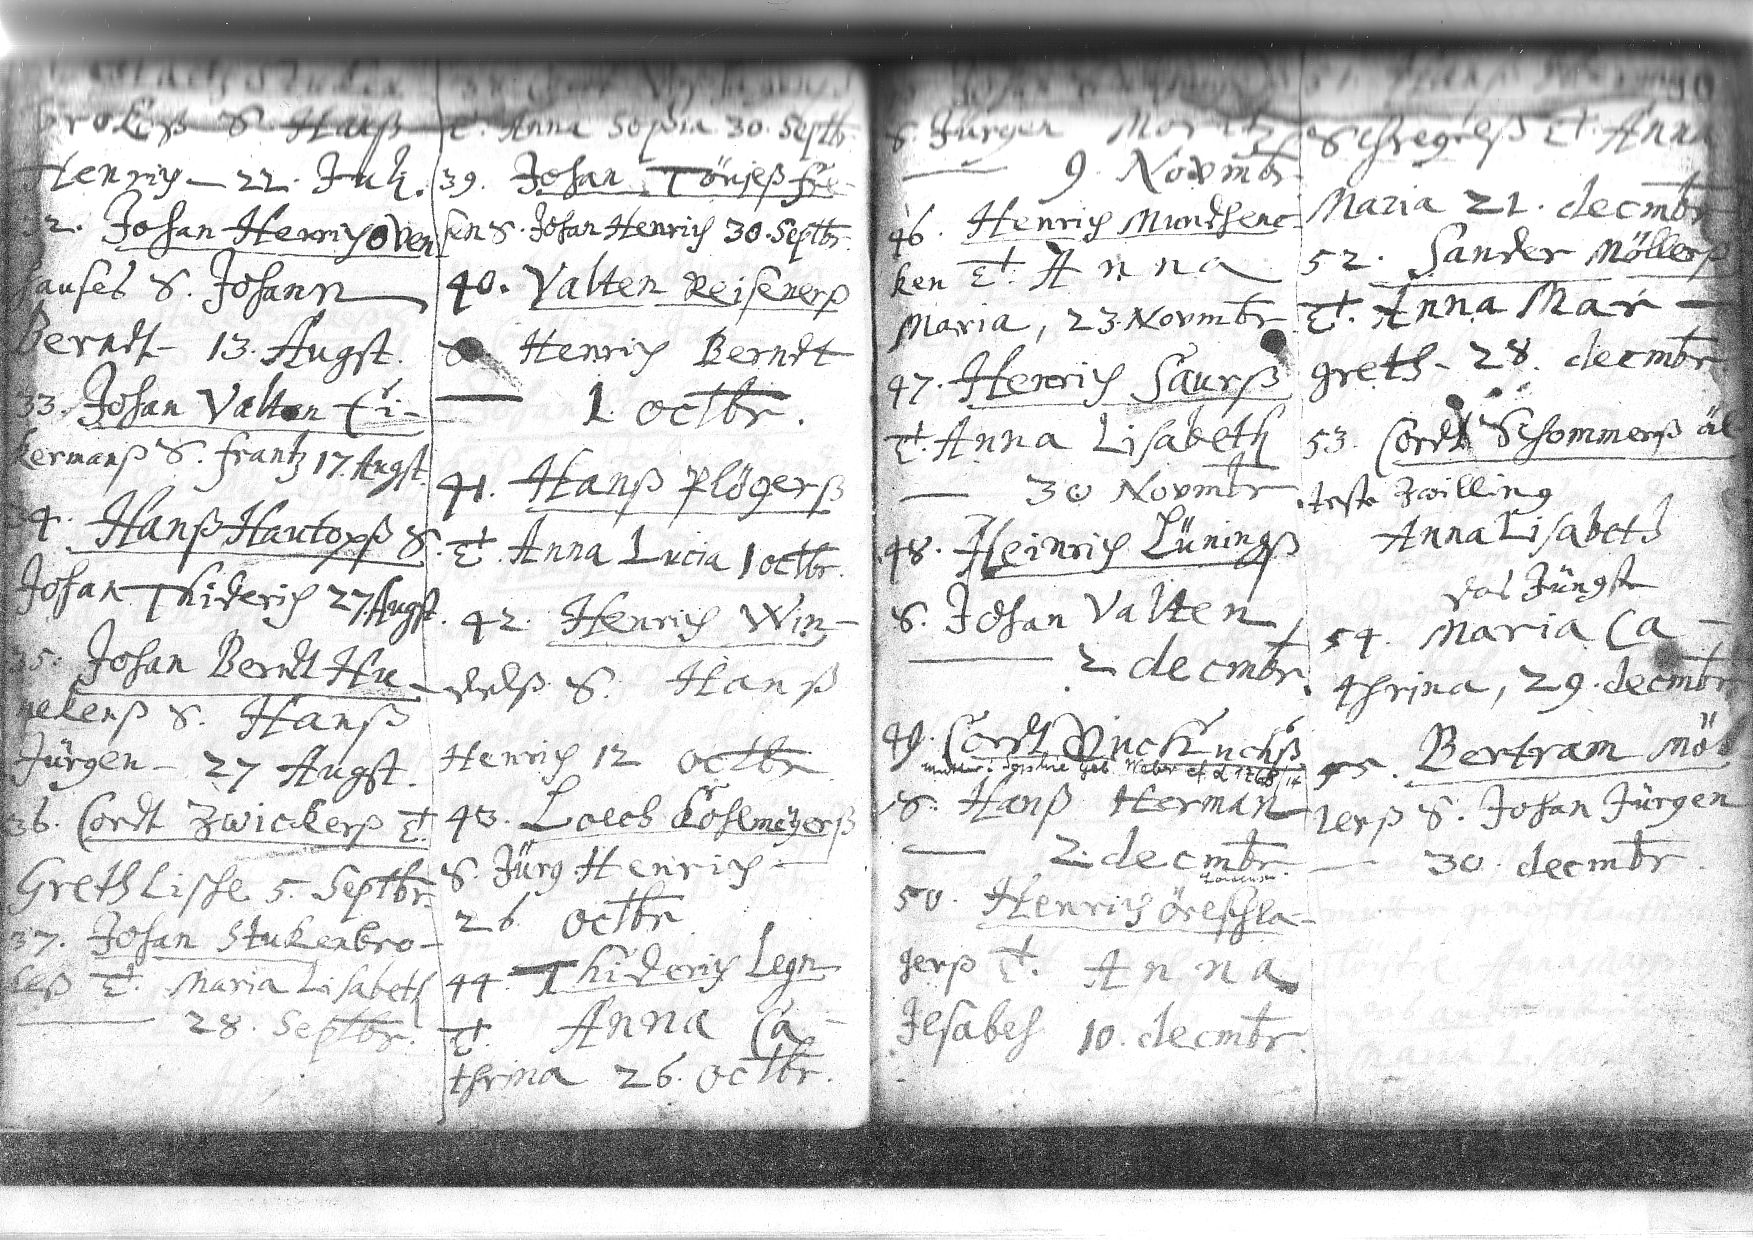 brokeß S. Hanß
Henrich — 22. Juli.
32. Johan Henrich Oven
hauses S. Johann
Berndt — 13. Augst.
33. Johan Valten Ci-
kermanß S. Frantz 17. Augst.
34. Hanß Hautopß S.
Johan Thiderich 27. Augst.
35. Johan Berndt Hu-
nekenß S. Hanß
Jürgen — 27 Augst.
36. Cordt Zwickerß T.
Greth Lische 5. Septbr.
37. Johan Stukenbro-
keß T. Maria Lisabeth
— 28. Septbr.
T. Anna Sophia 30. Septbr.
39. Johan Tönjeß
sen S. Johan Henrich 30. Septbr.
40. Valten Reisenerß
S. Henrich Berndt
— 1. Octbr.
41. Hanß Plögerß
T. Anna Lucia 1 Octbr.
42. Henrich Win-
S. Hanß
Henrich 12 Octbr.
43. Loeb Kohlmeyerß
S. Jürg Henrich —
26 Octbr.
44. Thiderich Legn
T. Anna Ca-
thrina 26. Octbr.
S. Jürgen Moritz
— 9. Novmbr.
46. Henrich Mundhenc-
ken T. Anna
Maria, 23. Novmbr.
47. Henrich Saurß
T. Anna Lisabeth
— 30 Novmbr
48. Heinrich Lüningß
S. Johan Valten
— 2 decmbr.
49. Cordt
S. Hanß Herman
— 2. decmbr.
50. Henrich Öreschla-
gerß T. Anna
Jlsabeh 10. decmbr.
51. Hanß
Schregelß T. Anna
Maria 21. decmbr
52. Sander Möllerß
T. Anna Mar —
greth — 28. decmbr.
53. Cordt Schommerß äl-
teste Zwilling
Anna Lisabeth
das Jüngste
54. Maria Ca —
thrina, 29. decmbr
55. Bertram Möl
lerß S. Johan Jürgen
— 30. decmbr.